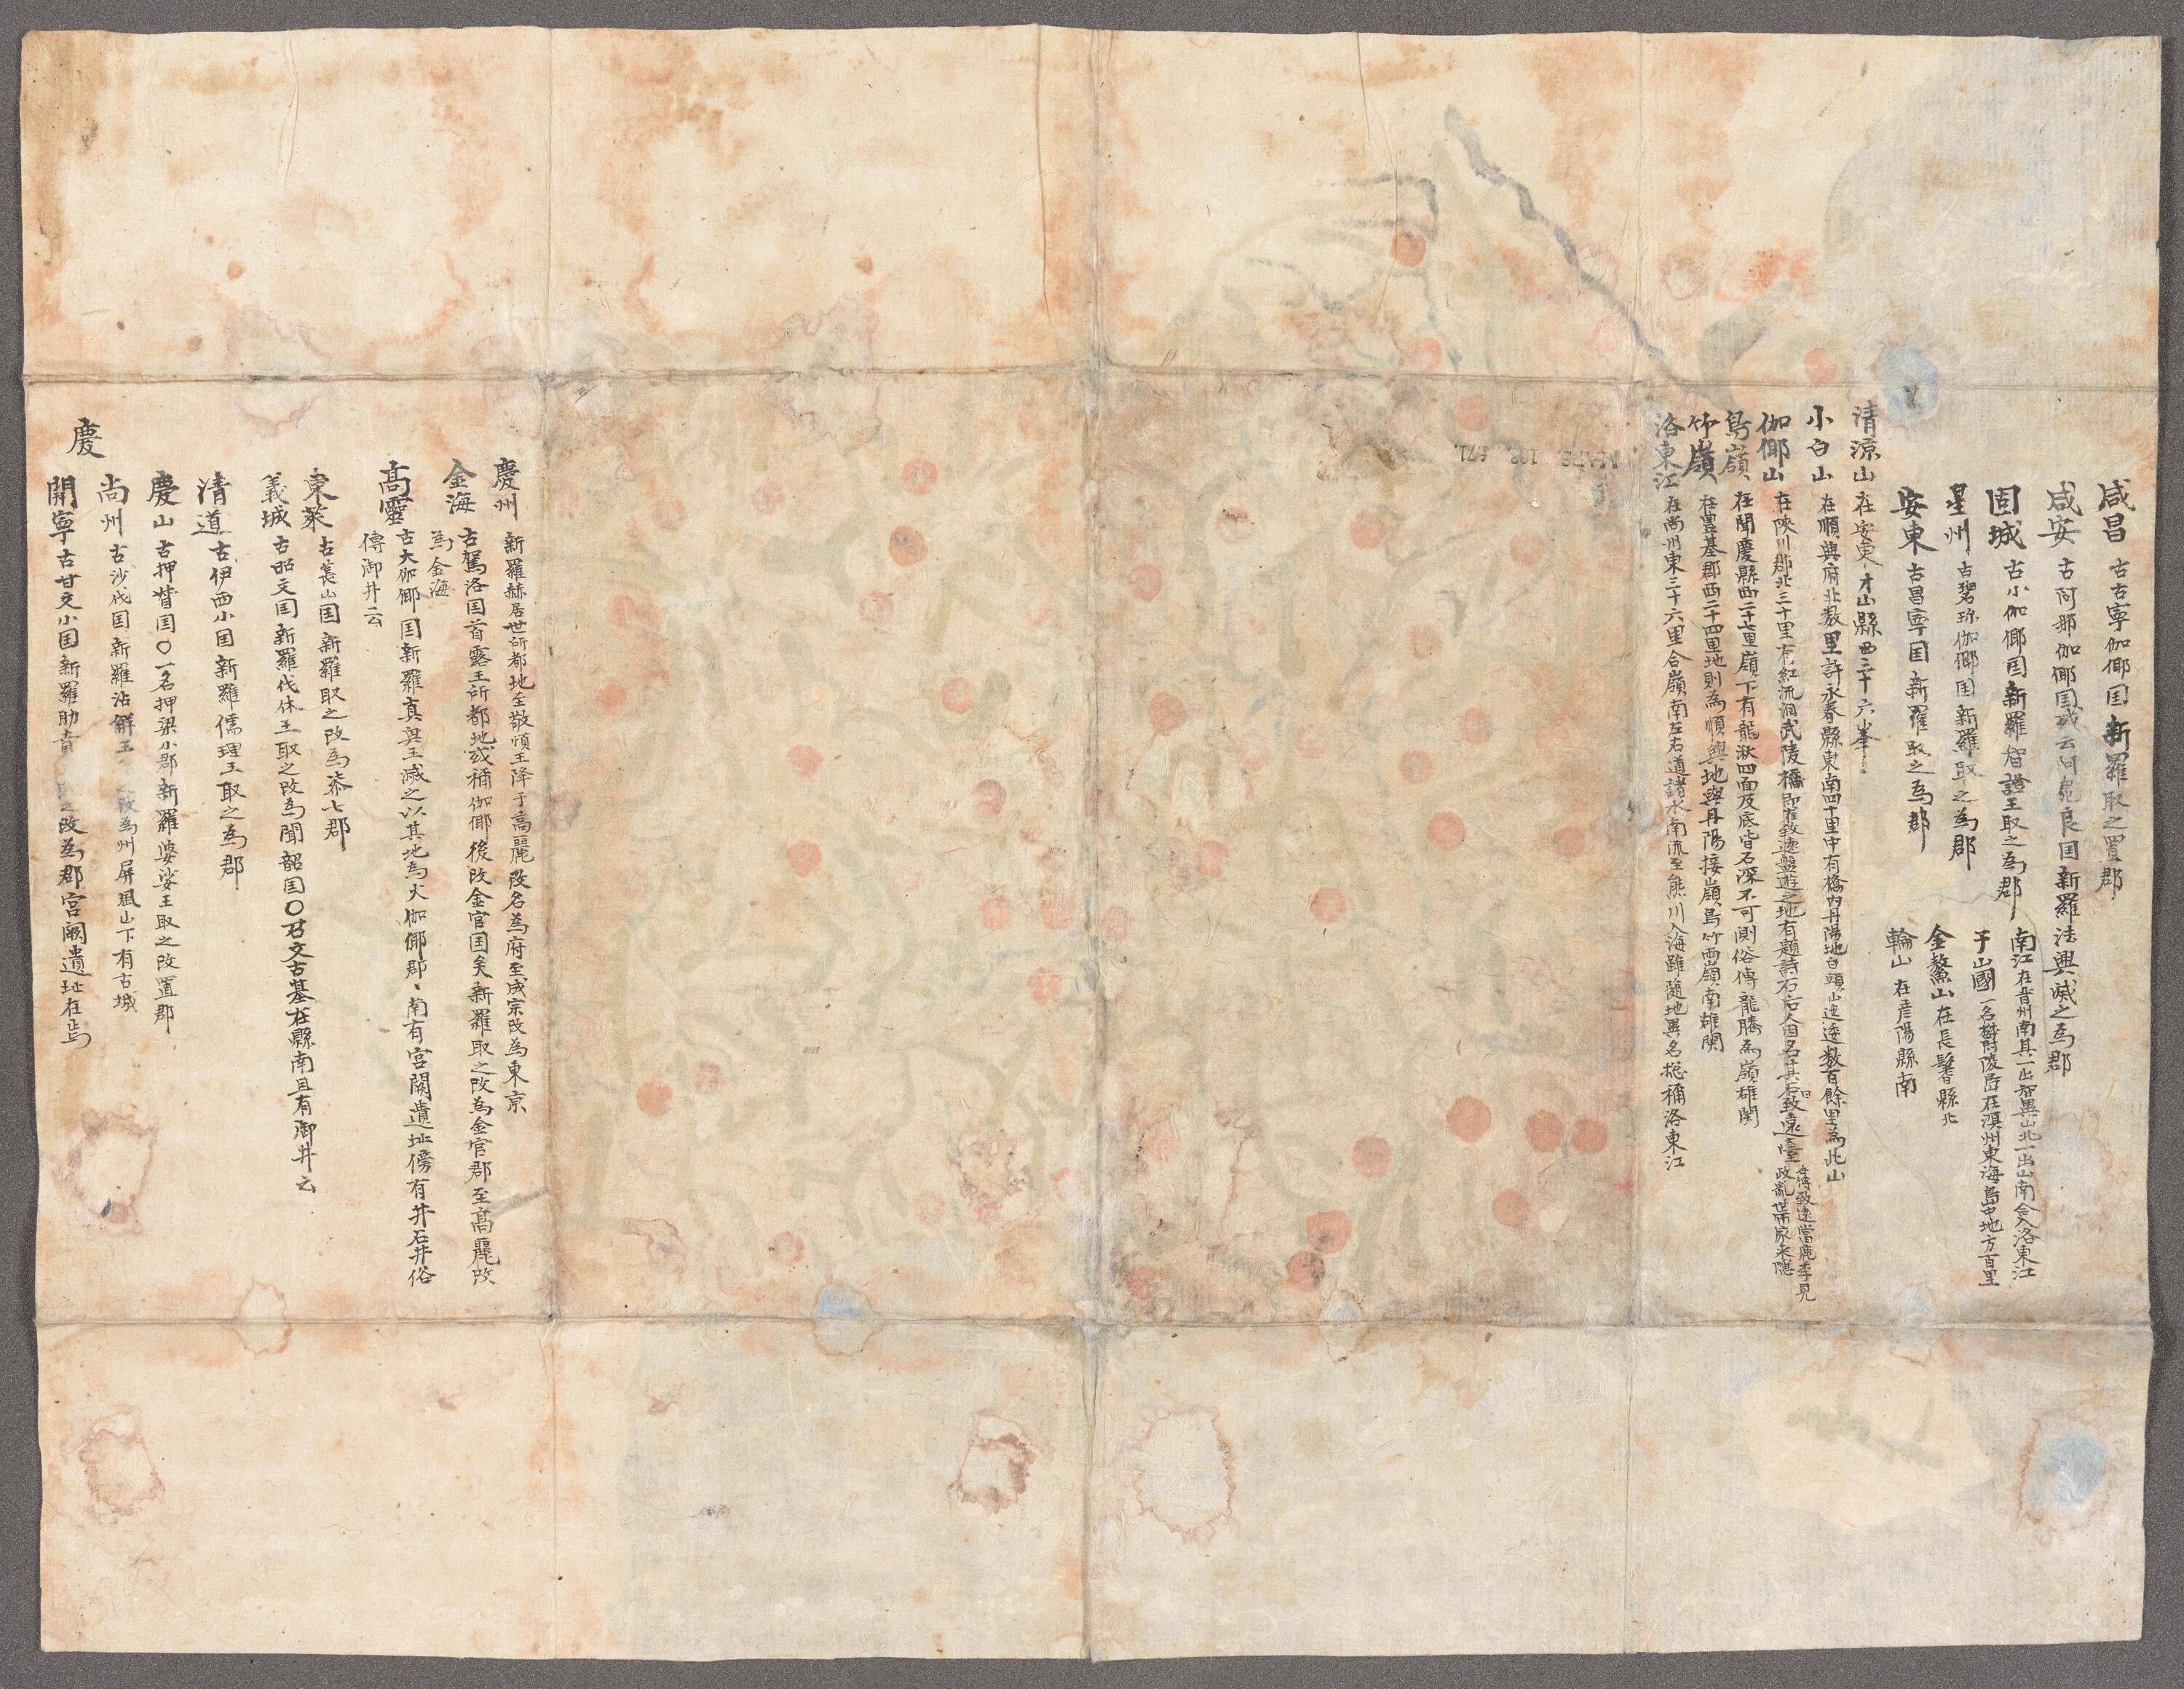 咸昌 古古寧伽倻国新羅取之置郡
咸安 古阿那伽倻国或云阿良国新羅法興滅之為郡
固城 古小伽倻国新羅智證王取之為郡
南江 在晉州南其一出智異山北一出山南合入洛東江
星州 古碧珍伽倻国新羅取之為郡
于山國 一名欝陵島在溟州東海島中地方百里
安東 古昌寧国新羅取之為郡
金鰲山 在長鬐縣北
輪山 在彦陽縣南
清凉山 在安東才山縣西三十六峯
小白山 在順興府北数里許永春縣東南四十里中有橋內丹陽地白頭山逶迤数百餘里為此山
伽倻山 在陜川郡北三十里有紅流洞武陵橋即崔致遠盤遊之地有題詩石后人因名其石曰致遠臺
世傳致遠當鹿李見
政亂世而家来隱
鳥嶺 在聞慶縣西二十七里嶺下有龍湫四面及底皆石深不可測俗傳龍騰為嶺雄関
竹嶺 在豊基郡西二十四里地則為順興地與丹陽接嶺鳥竹両嶺南雄関
洛東江 在尚州東三十六里合嶺南左右道諸水南流至熊川入海雖随地異名捴稱洛東江
MAPS 102 f.71.
慶州 新羅赫居世所都地至敬順王降于高麗改名為府至成宗改為東京
金海 古駕洛国首露王所都地或稱伽倻後改金官国矣新羅取之改為金官郡至高麗改
為金海
高靈 古大伽倻国新羅真興王滅之以其地為大伽倻郡、南有宮闕遺址傍有井石井俗
傳御井云
東萊 古萇山国新羅取之改為漆七郡
義城 古昭文国新羅伐休王取之改為聞韶国〇召文古基在縣南且有御井云
清道 古伊西小国新羅儒理王取之為郡
慶山 古押督国〇一名押梁小郡新羅婆娑王取之改置郡
尚州 古沙伐国新羅沾解王 改為州屏風山下有古城
慶
開寧 古甘文小国新羅助賁 取之改為郡宮闕遺址在焉